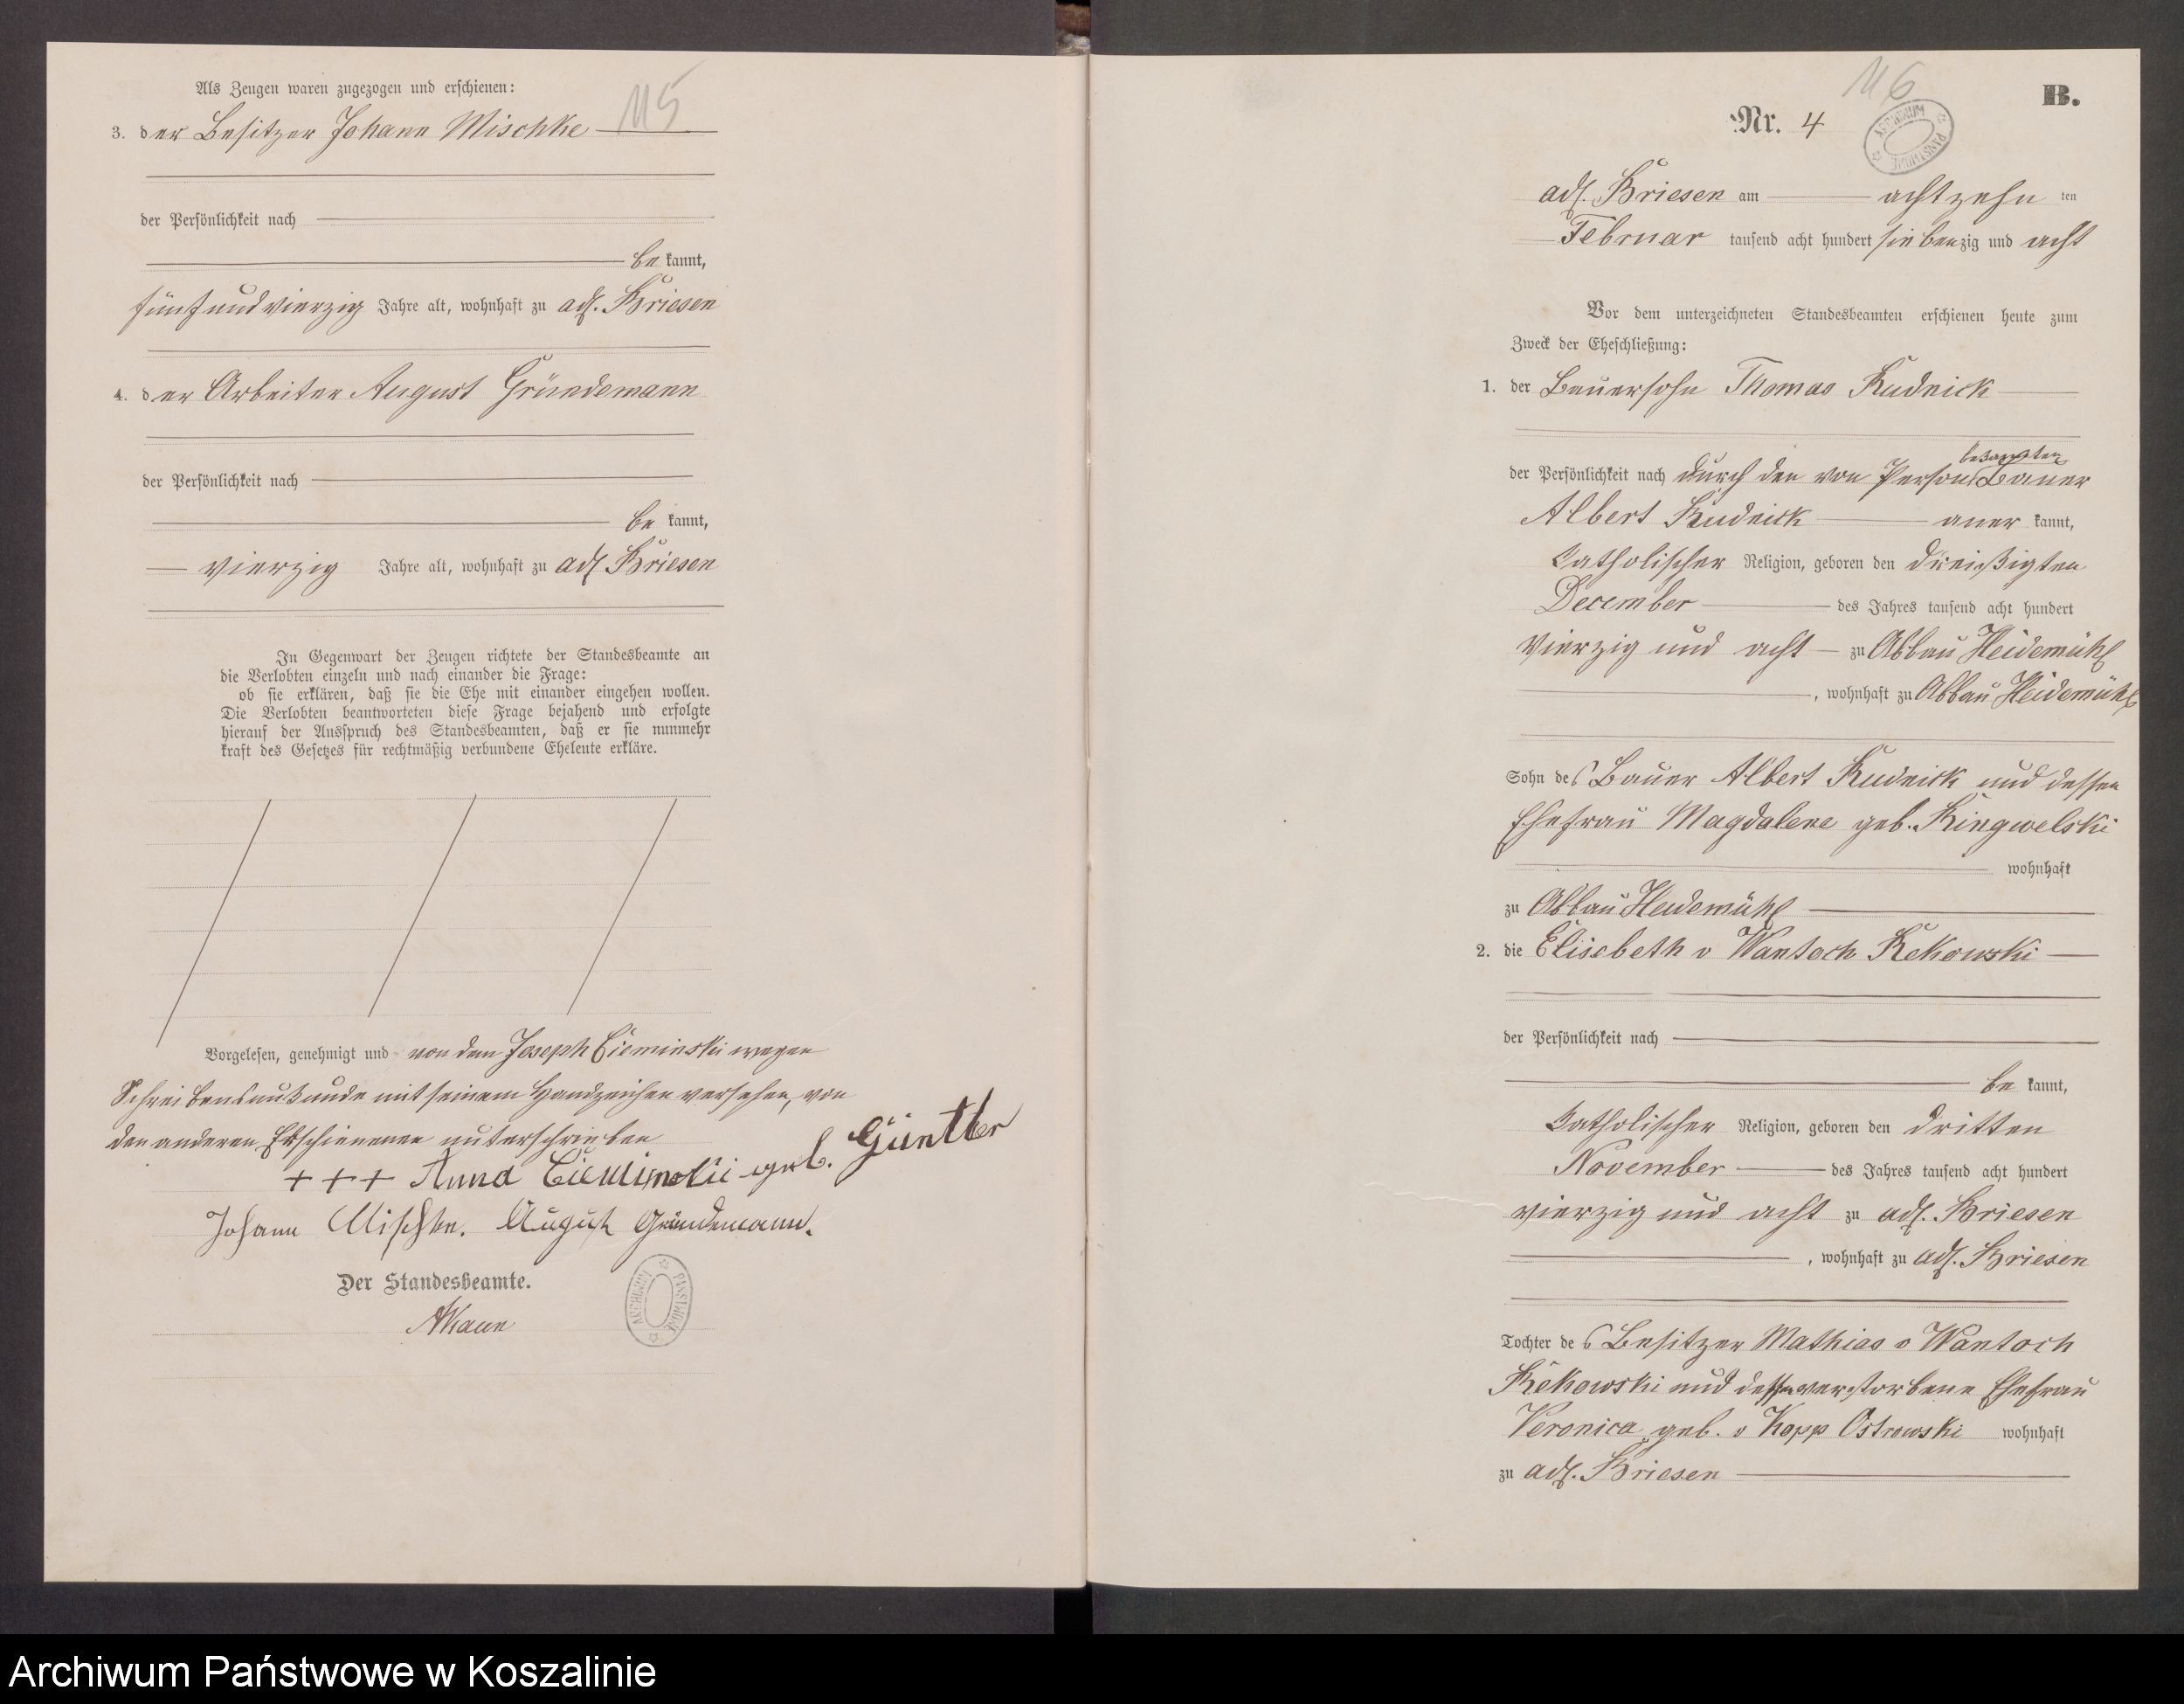 Als Zeugen waren zugezogen und erschienen:
115
3. der Besitzer Johann Mischke
der Persönlichkeit nach
be kannt,
fünfundvierzig Jahre alt, wohnhaft zu adl. Briesen
4. der Arbeiter August Gründemann
der Persönlichkeit nach
be kannt,
vierzig Jahre alt, wohnhaft zu adl Briesen
In Gegenwart der Zeugen richtete der Standesbeamte an
die Verlobten einzeln und nach einander die Frage:
ob sie erklären, daß sie die Ehe mit einander eingehen wollen.
Die Verlobten beantworteten diese Frage bejahend und erfolgte
hierauf der Ausspruch des Standesbeamten, daß er sie nunmehr
kraft des Gesetzes für rechtmäßig verbundene Eheleute erkläre.
Vorgelesen, genehmigt und von dem Joseph Cieminski wegen
Schreibensunkunde mit seinem Handzeichen versehen, von
den anderen Erschienenen unterschrieben
+++ Anna Cieminski geb. Günther
Johann Mischke. August Gründemann.
Der Standesbeamte.
ARCHIWUM PAŃSTWOWE
116
B.
Nr. 4
ARCHIWUM PAŃSTWOWE
adl. Briesen am achtzehn ten
Februar tausend acht hundert siebenzig und acht
Vor dem unterzeichneten Standesbeamten erschienen heute zum
Zweck der Eheschließung:
1. der Bauersohn Thomas Rudnick
bekannten
der Persönlichkeit nach durch den von Person Bauer
Albert Rudnick aner kannt,
katholischer Religion, geboren den dreißigten
December des Jahres tausend acht hundert
vierzig und acht zu Abbau Heidemühl
, wohnhaft zu Abbau Heidemühl
Sohn des Bauer Albert Rudnick und dessen
Ehefrau Magdalene geb. Ringwelski
wohnhaft
zu Abbau Heidemühl
2. die Elisebeth v Wantoch Rekowski
der Persönlichkeit nach
be kannt,
katholischer Religion, geboren den dritten
November des Jahres tausend acht hundert
vierzig und acht zu adl. Briesen
, wohnhaft zu adl. Briesen
Tochter des Besitzer Mathias v Wantoch
Rekowski und dessen verstorbene Ehefrau
Veronica geb. v Kopp Ostrowski wohnhaft
zu adl. Briesen
Archiwum Państwowe w Koszalinie